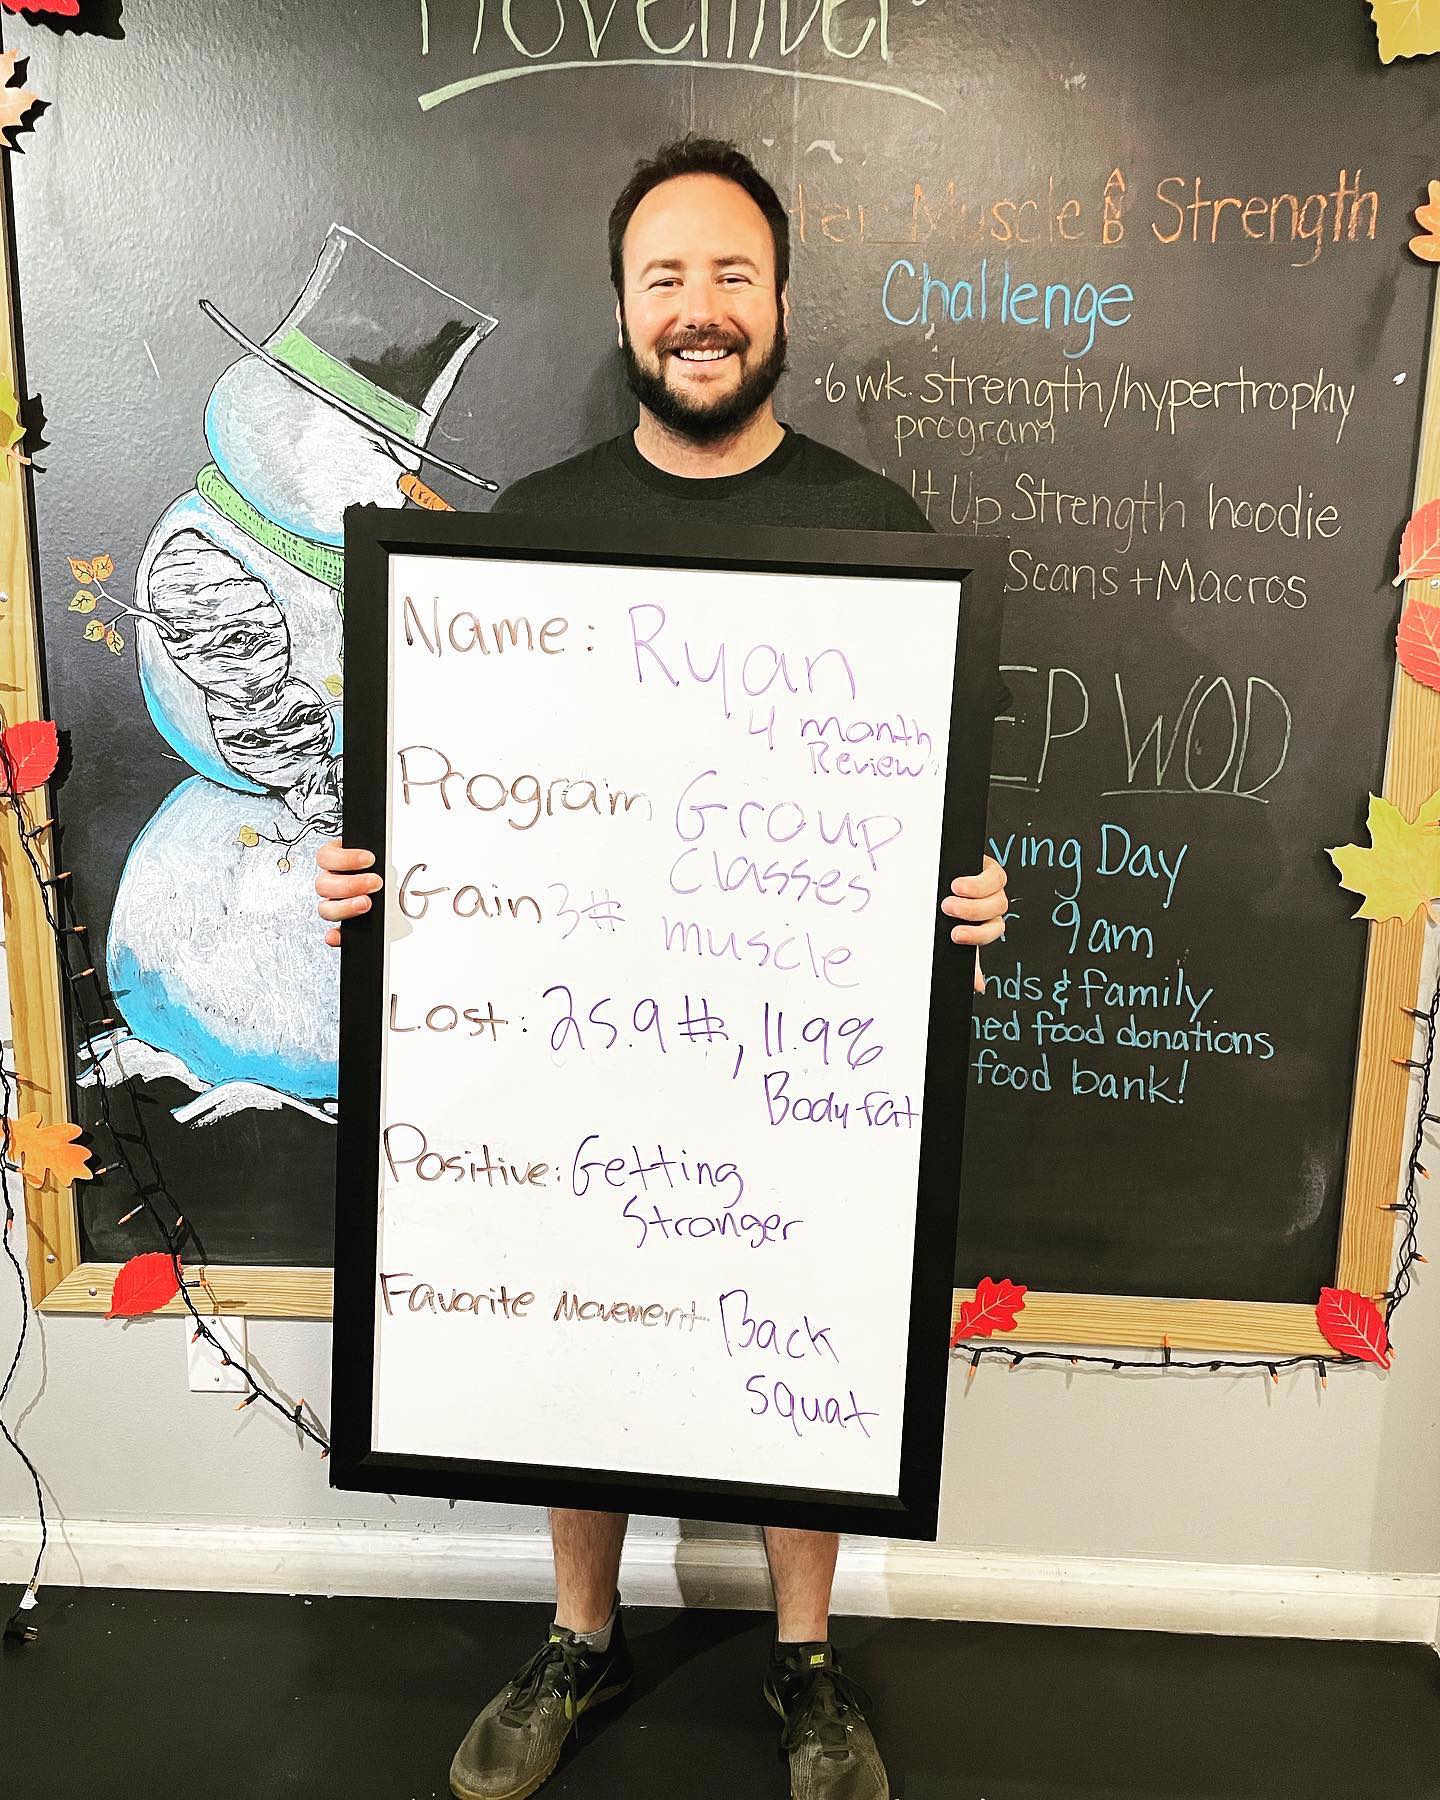 November
Muscle AND Strength
Challenge
•6 wk. strength/hypertrophy
program
Up Strength hoodie
Scans + Macros
WOD
Day
9am
& family
food donations
food bank!
Name: Ryan
4 month
Review
Program Group
Classes
Gain 3# muscle
Lost: 25.9#, 11.9%
Body fat
Positive: Getting
Stronger
Favorite Movement Back
Squat
NIKE